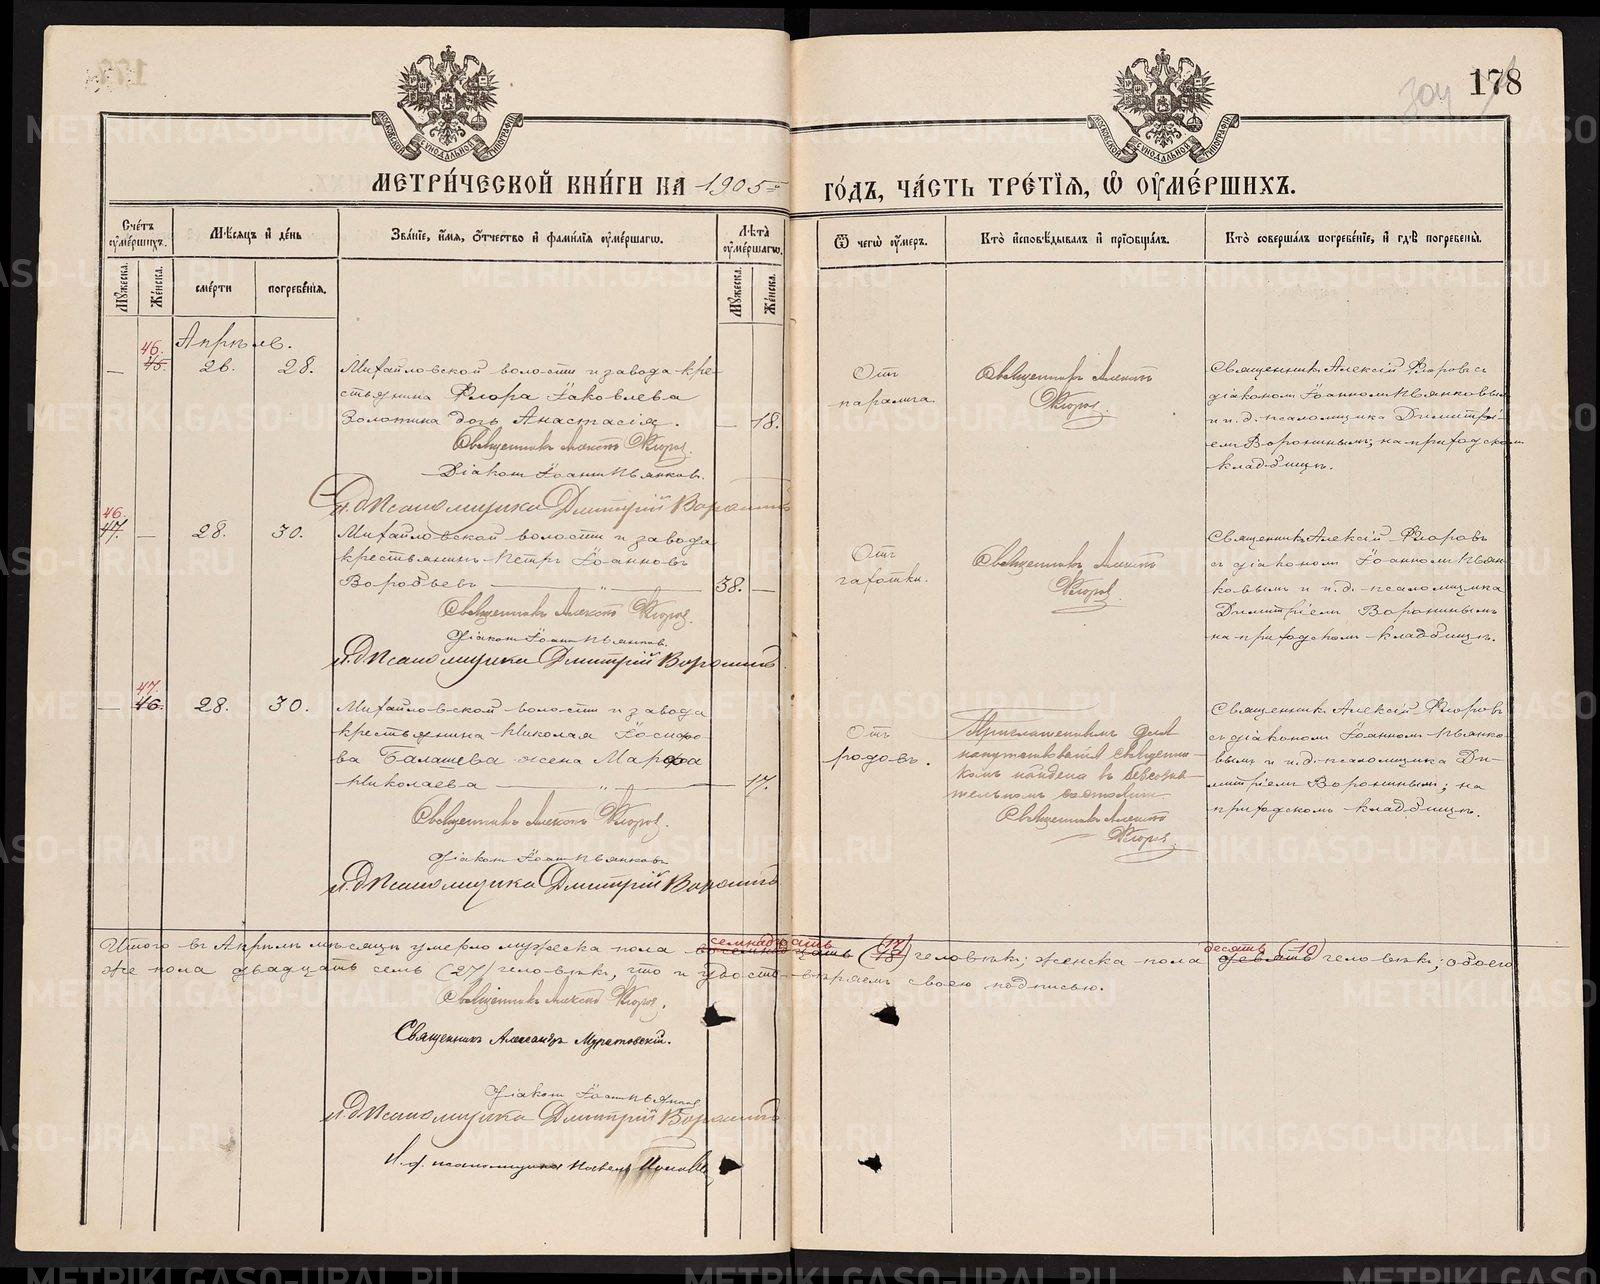 178
МОСКОВСКОЙ СѴНОДАЛЬНОЙ ТИПОГРАФІИ
МОСКОВСКОЙ СѴНОДАЛЬНОЙ ТИПОГРАФІИ
МЕТРИ́ЧЕСКОЙ КНИ́ГИ НА 1905 й
ГО́ДЪ, ЧА́СТЬ ТРЕ́ТІѦ, Ѽ ОУМЕ́РШИХЪ.
Сче́тъ оуме́ршихъ.
Мѣ́сяцъ и де́нь
Зва́ніе, и́мя, о́тчество и фами́лія оуме́ршагѡ.
Лѣ́та оуме́ршагѡ.
Ѿ чегѡ̀ оу́меръ.
Кто̀ исповѣ́дывалъ и пріѡбща́лъ.
Кто̀ соверша́лъ погребе́ніе, и гдѣ̀ погребены̀.
Му́жеска.
Же́нска.
сме́рти
погребе́нія.
Му́жеска.
Же́нска.
Апрель.
46.
— 45. 26. 28.
Михайловской волости и завода кре-
стьянина Флора Іаковлева
Золотина дочь Анастасія. — 18.
Священникъ Алексій Флоровъ.
Діаконъ Іоаннъ Пьянковъ.
И. д. Псаломщика Дмитрій Воронинъ
Отъ
паралича.
Священникъ Алексій
Флоровъ.
Священникъ Алексій Флоровъ съ
діакономъ Іоанномъ Пьянковымъ
и и. д. псаломщика Димитрі-
емъ Воронинымъ; на приходскомъ
кладбищѣ.
46.
47. — 28. 30.
Михайловской волости и завода
крестьянинъ Петръ Іоанновъ
Воробьевъ — „ — 38. —
Священникъ Алексій Флоровъ.
Діаконъ Іоаннъ Пьянковъ.
И. д. Псаломщика Дмитрій Воронинъ.
Отъ
чахотки.
Священникъ Алексій
Флоровъ.
Священникъ Алексій Флоровъ
съ діакономъ Іоанномъ Пьян-
ковымъ и и. д. псаломщика
Димитріемъ Воронинымъ
на приходскомъ кладбищѣ.
47.
— 46. 28. 30.
Михайловской волости и завода
крестьянина Николая Іосифо
ва Балашева жена Марфа
Николаева — „ — 17.
Священникъ Алексій Флоровъ.
Діаконъ Іоаннъ Пьянковъ
И. д. Псаломщика Дмитрій Воронинъ
Отъ
родовъ.
Приглашеннымъ для
напутствованія священни-
комъ найдена въ безсозна-
тельномъ состояніи
Священникъ Алексій
Флоровъ
Священникъ Алексій Флоровъ
съ діакономъ Іоанномъ Пьянко-
вымъ и и. д. псаломщика Ди-
митріемъ Воронинымъ; на
приходскомъ кладбищѣ.
семнадцать (17) десять (10)
Итого въ Апрѣлѣ мѣсяцѣ умерло мужеска пола восемнадцать (18) человѣкъ; женска пола девять человѣкъ; обоего
же пола двадцать семь (27) человѣкъ, что и удостовѣряемъ своею подписью.
Священникъ Алексій Флоровъ.
Священникъ Александръ Муратовскій.
Діаконъ Іоаннъ Пьянков
И. д. Псаломщика Дмитрій Воронинъ
И. д. псаломщика